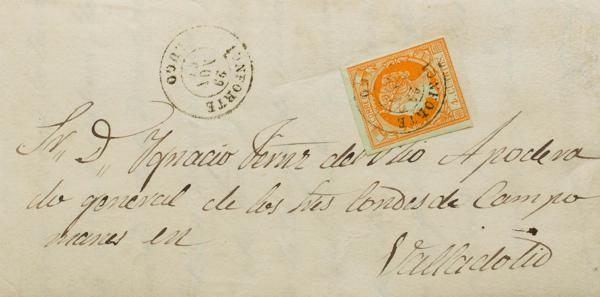 MONFORTE
LUGO
Sr. D. Ignacio Fernz del Rio Apodera
do general de los Sres Condes de Campo
manes en
Valladolid